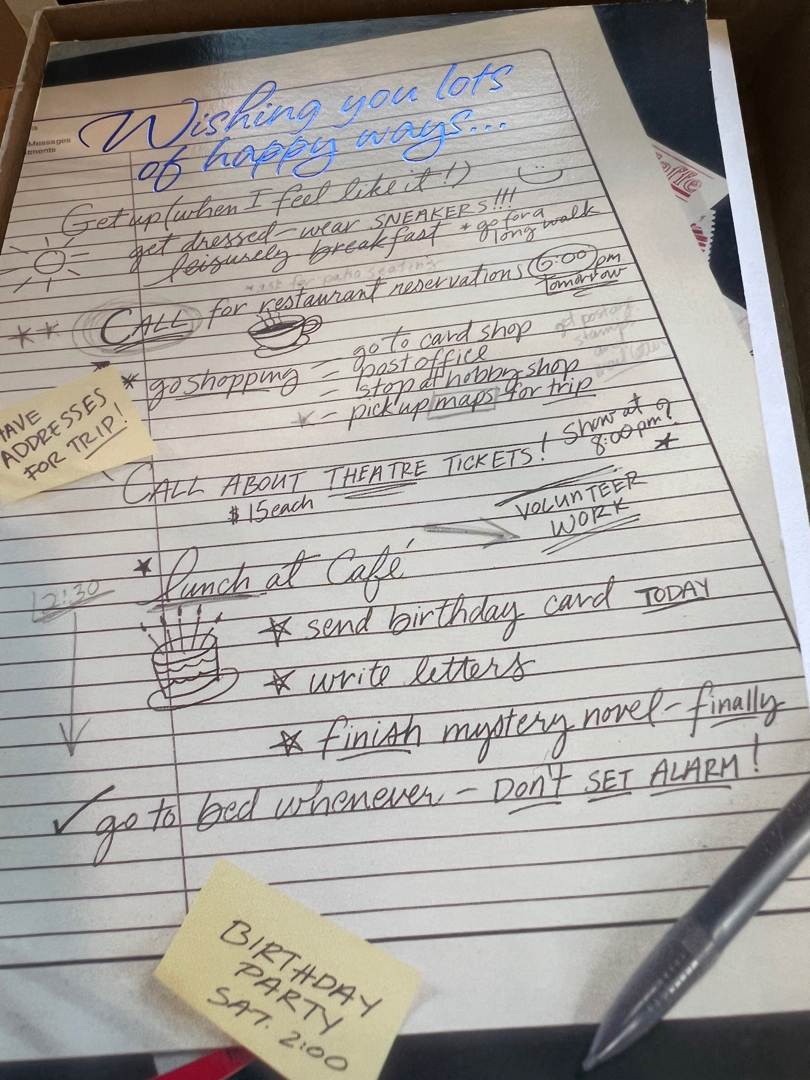 Messages
Wishing you lots
of happy ways...
Get up (when I feel like it!)
get dressed - wear SNEAKERS!!!
leisurely breakfast * go for a
long walk
*ask for patio seating
CALL for restaurant reservations 6:00 pm
tomorrow
* go shopping - go to card shop
- post office
- stop at hobby shop
- pick up maps for trip
ADDRESSES
FOR TRIP!
CALL ABOUT THEATRE TICKETS! Show at
8:00 pm?
$15 each
VOLUNTEER
WORK
lunch at Café
12:30
send birthday card TODAY
write letters
finish mystery novel - finally
✓ go to bed whenever - DON'T SET ALARM!
BIRTHDAY
PARTY
SAT. 2:00